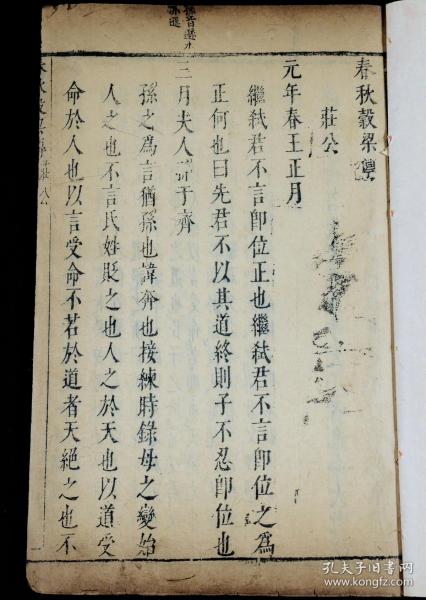 春秋穀梁傳
莊公
元年春王正月
繼弑君不言即位正也繼弑君不言即位之為
正何也曰先君不以其道終則子不忍即位也
三月夫人孫于齊
孫之為言猶孫也諱奔也接練時錄母之變始
人之也不言氏姓貶之也人之於天也以道受
命於人也以言受命不若於道者天絕之也不
孔夫子旧书网
www.kongfz.com